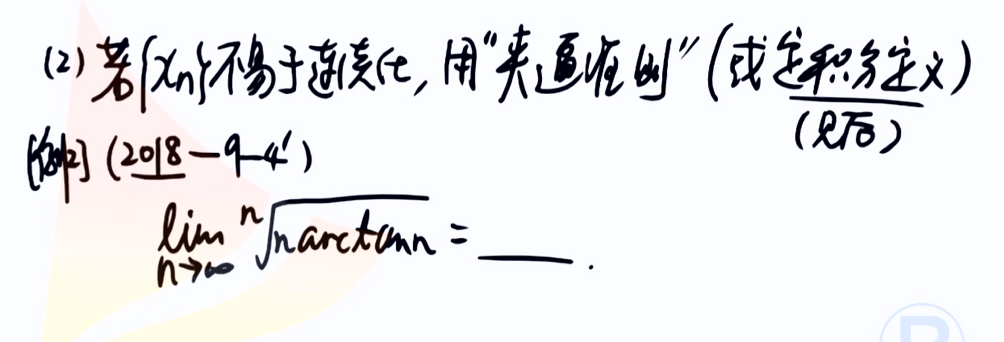 (2) 若{xₙ}不易于连续化, 用"夹逼准则" (或定积分定义)
(见后)
[例2] (2018-9-4')
lim n→∞ ⁿ√(n arctan n) = ____.